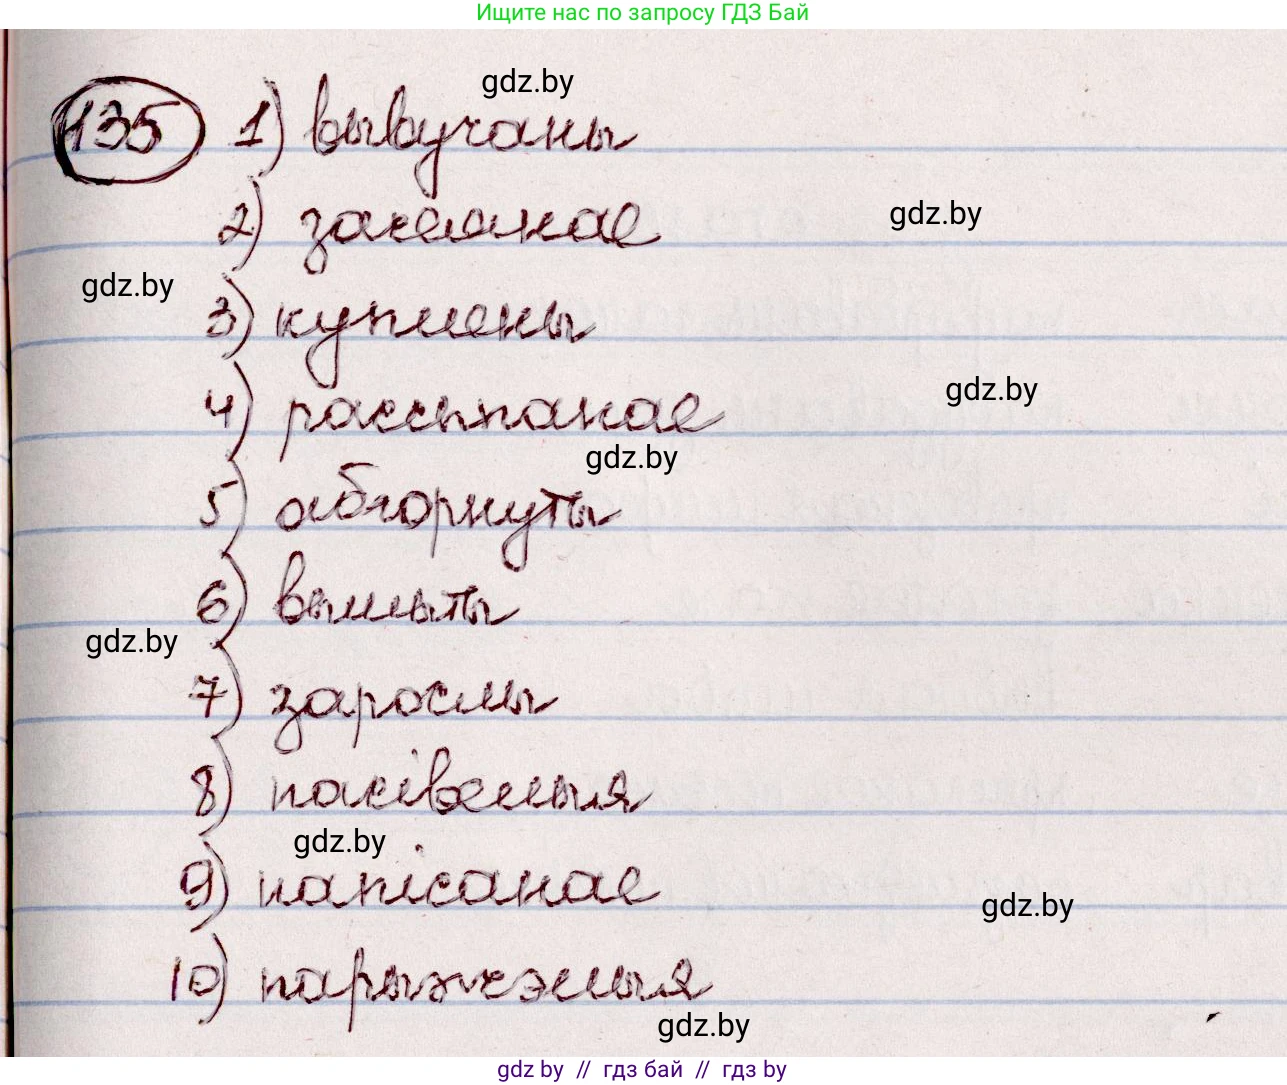 Ищите нас по запросу ГДЗ Бай
gdz.by
135 1) вывучаны
2) закасанае
gdz.by
gdz.by
3) куплены
4) рассыпанае
gdz.by
gdz.by
5) абгорнуты
6) вымыты
gdz.by
7) зарослы
8) пасівелыя
gdz.by
9) напісанае
gdz.by
10) парыжэлыя
gdz.by
gdz by // гдз бай // гдз by